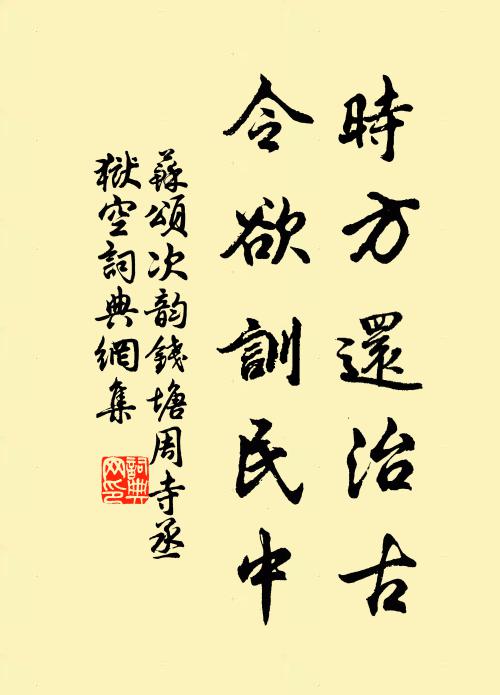 時方還治古
令欲訓民中
蘇頌次韵錢塘周寺丞
獄空詞典網集
詞典
网印